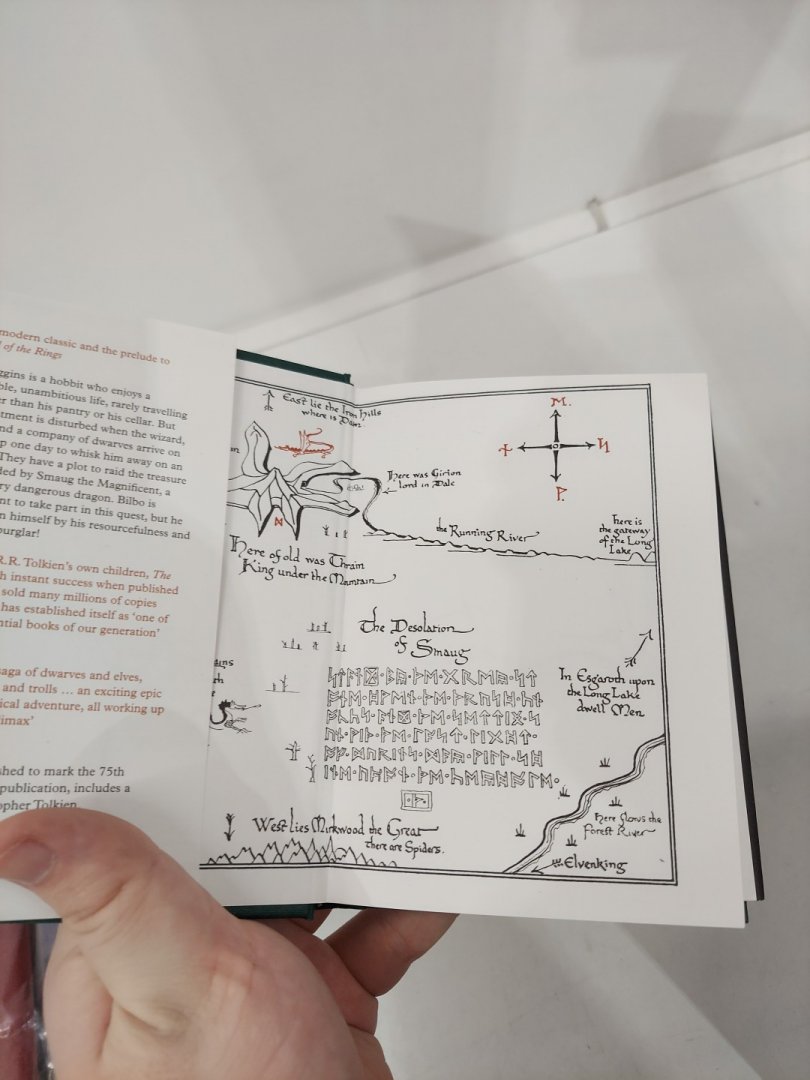 modern classic and the prelude to
of the Rings
is a hobbit who enjoys a
unambitious life, rarely travelling
than his pantry or his cellar. But
is disturbed when the wizard,
and a company of dwarves arrive on
one day to whisk him away on an
They have a plot to raid the treasure
by Smaug the Magnificent, a
dangerous dragon. Bilbo is
to take part in this quest, but he
himself by his resourcefulness and
R.R. Tolkien's own children, The
instant success when published
sold many millions of copies
has established itself as 'one of
books of our generation'
of dwarves and elves,
and trolls ... an exciting epic
adventure, all working up
to mark the 75th
publication, includes a
Tolkien
East lie the Iron Hills
where is Dain
ᛖ.
ᚾ
ᛋ
ᚹ.
Here was Girion
lord in Dale
the Running River
here is
the gateway
of the Long
Lake
ᛞ
Here of old was Thrain
King under the Mountain
The Desolation
of Smaug
ᛋᛏᚪᚾᛞ·ᛒᚣ·ᚦᛖ·ᚷᚱᛖᚣ·ᛋᛏ
ᚩᚾᛖ·ᚻᚹᛖᚾ·ᚦᛖ·ᚦᚱᚢᛋᚻ·ᚳᚾ
ᚩᚳᚳᛋ·ᚪᚾᛞ·ᚦᛖ·ᛋᛖᛏᛏᛁᛝ·ᛋ
ᚢᚾ·ᚹᛁᚦ·ᚦᛖ·ᛚᚪᛋᛏ·ᛚᛁᚷᚻᛏ·
ᚩᚠ·ᛞᚢᚱᛁᚾᛋ·ᛞᚪᚣ·ᚹᛁᛚᛚ·ᛋᚻ
ᛁᚾᛖ·ᚢᛈᚩᚾ·ᚦᛖ·ᚳᛖᚣᚻᚩᛚᛖ·
In Esgaroth upon
the Long Lake
dwell Men
Here flows the
Forest River
Elvenking
West lies Mirkwood the Great
there are Spiders.